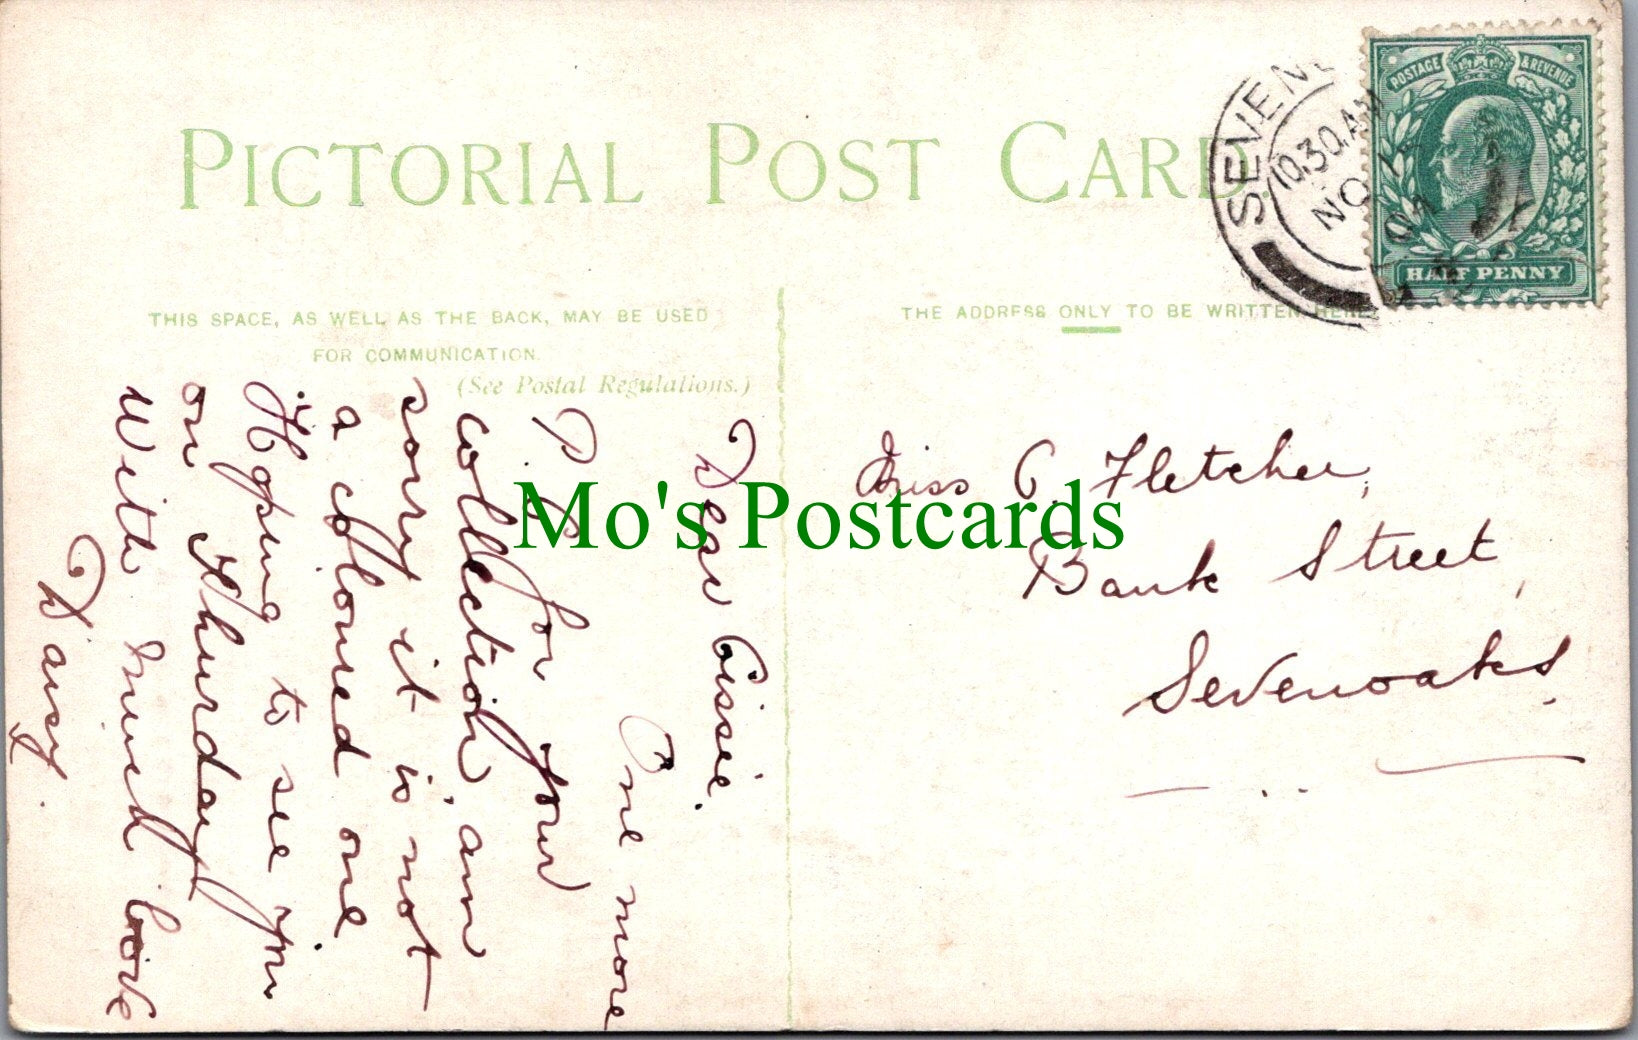 PICTORIAL POST CARD.
THIS SPACE, AS WELL AS THE BACK, MAY BE USED
FOR COMMUNICATION.
(See Postal Regulations.)
THE ADDRESS ONLY TO BE WRITTEN HERE.
POSTAGE & REVENUE
HALF PENNY
SEVENO
10.30.AM
NO 15
Dear Cissie.
One more
P.C. for your
collection, am
sorry it is not
a coloured one.
Hoping to see you
on Thursday
With much love
Daisy.
Miss C. Fletcher,
Bank Street,
Sevenoaks.
Mo's Postcards